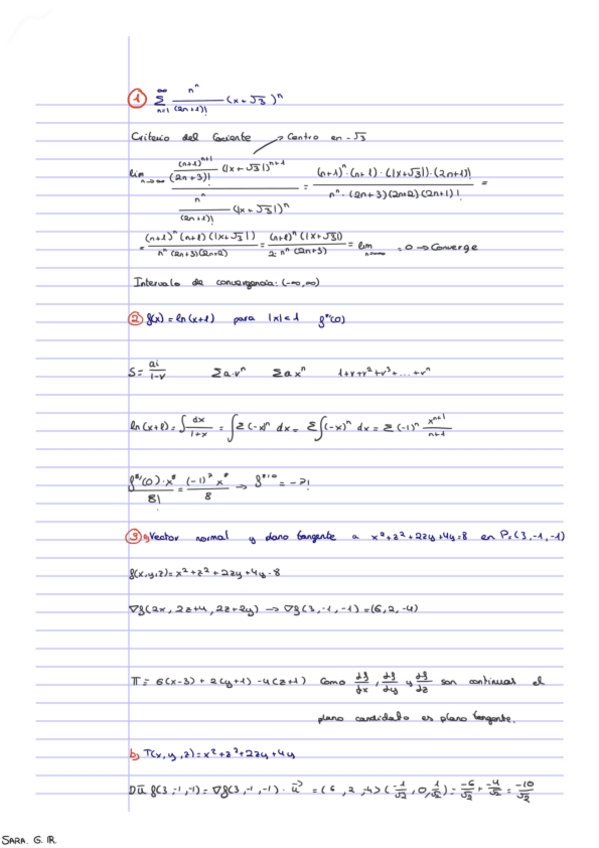 1 ∑ n=1 ∞ n^n/(2n+1)! (x+√3)^n
Criterio del Cociente → Centro en -√3
lim n→∞ ((n+1)^(n+1)/(2n+3)! (|x+√3|)^(n+1))/(n^n/(2n+1)! (|x+√3|)^n) = ((n+1)^n·(n+1)·(|x+√3|)·(2n+1)!)/(n^n·(2n+3)(2n+2)(2n+1)!) =
= ((n+1)^n(n+1)(|x+√3|))/(n^n(2n+3)(2n+2)) = ((n+1)^n(|x+√3|))/(2·n^n(2n+3)) = lim n→∞ = 0 → Converge
Intervalo de convergencia: (-∞,∞)
2 f(x)=ln(x+1) para |x|<1 f^8(0)
S= /1-r ∑a·r^n ∑ax^n 1+r+r²+r³+...+r^n
ln(x+1)=∫dx/1+x = ∫∑(-x)^n dx = ∑∫(-x)^n dx = ∑(-1)^n x^(n+1)/n+1
(0)·x^8/8! = (-1)^7 x^8/8 → = -7!
3 a) Vector normal y plano tangente a x²+z²+2zy+4y=8 en P=(3,-1,-1)
f(x,y,z)=x²+z²+2zy+4y-8
∇f(2x, 2z+4, 2z+2y) → ∇f(3,-1,-1)=(6,2,-4)
π= 6(x-3)+2(y+1)-4(z+1) Como ∂f/∂x, ∂f/∂y y ∂f/∂z son continuas el
plano candidato es plano tangente.
b) T(x,y,z)=x²+z²+2zy+4y
Dū f(3,-1,-1)=∇f(3,-1,-1)·u⃗ = (6,2,-4)(-1/√2, 0, 1/√2)= -6/√2 + -4/√2 = -10/√2
SARA. G. R.